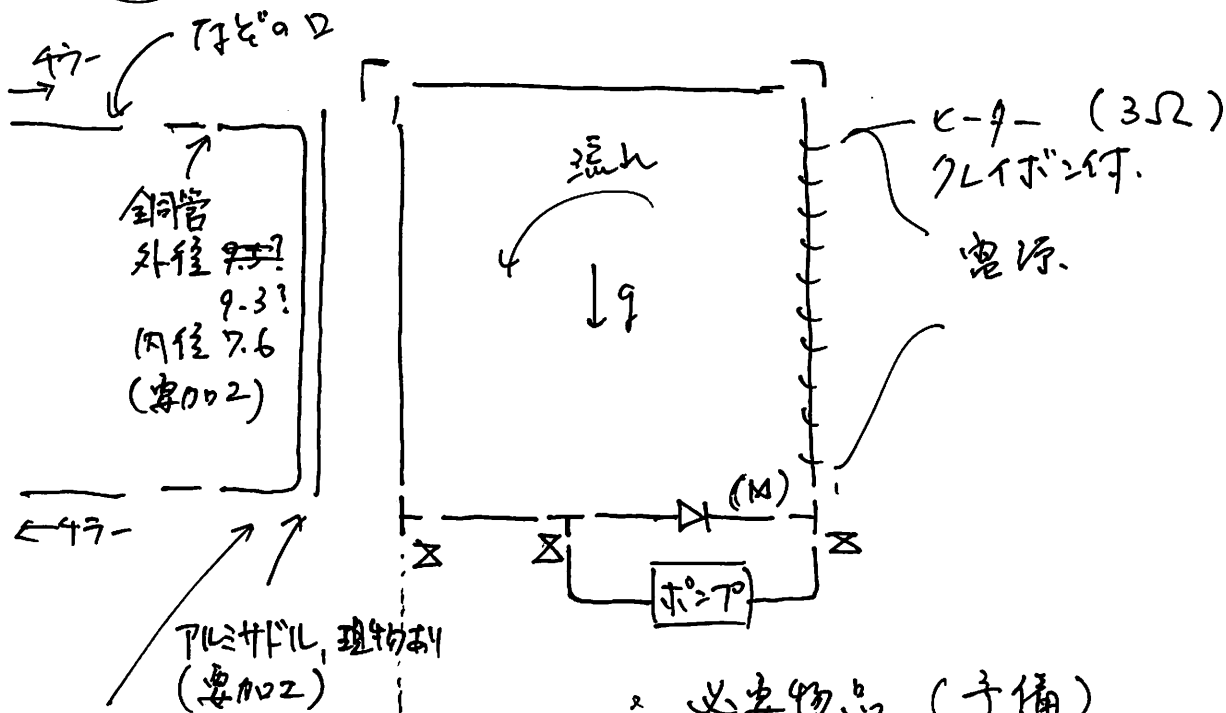 なぞの口
チラー
銅管
外径 9.5?
9.3?
内径 7.6
(要加工)
流れ
↓g
ヒーター (3Ω)
クレイボン付.
電源.
←チラー
ポンプ
アルミサドル, 現物あり
(要加工)
・必要物品 (予備)